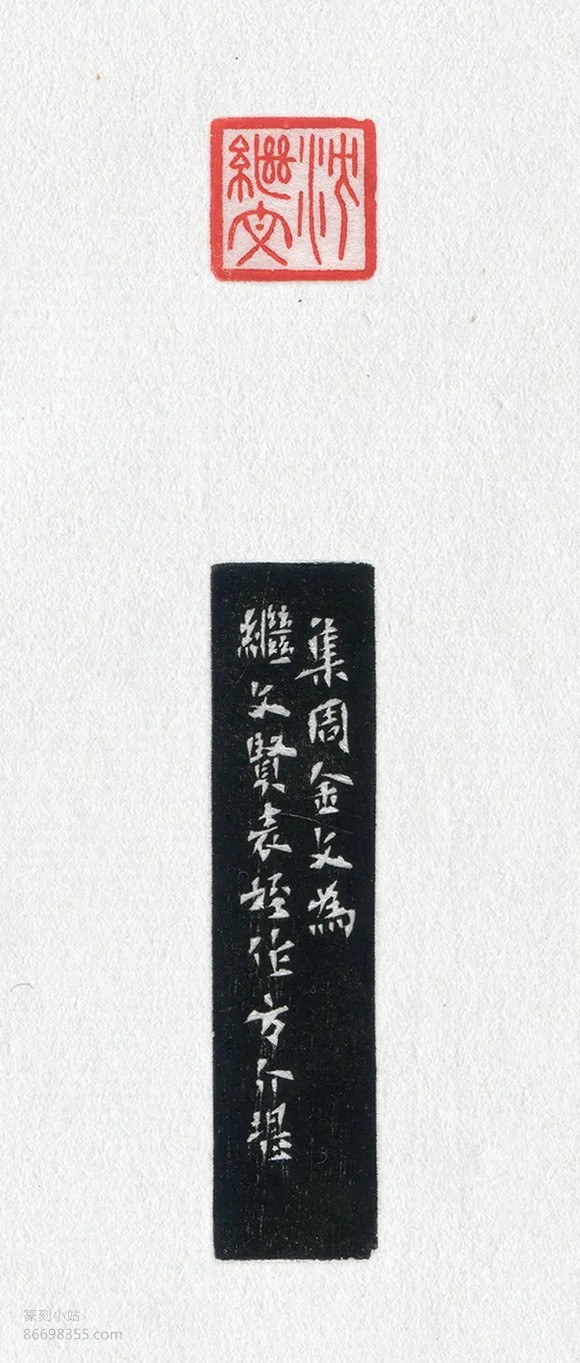 沈
繼文
集周金文為
繼文賢表姪作方介堪
篆刻小站
86698355.com